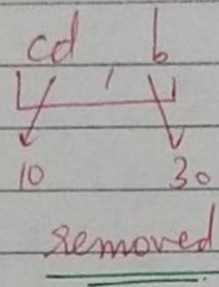 cd b
10 30
removed